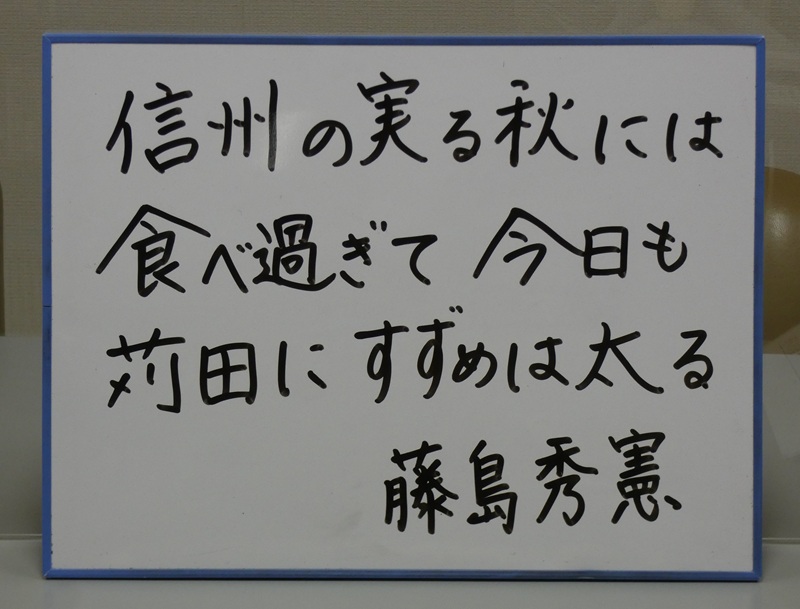 信州の実る秋には
食べ過ぎて 今日も
苅田にすずめは太る
藤島秀憲